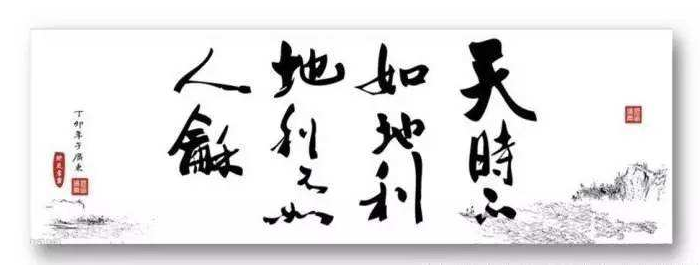 天時不
如地利
地利不如
人龢
丁卯年于廣東